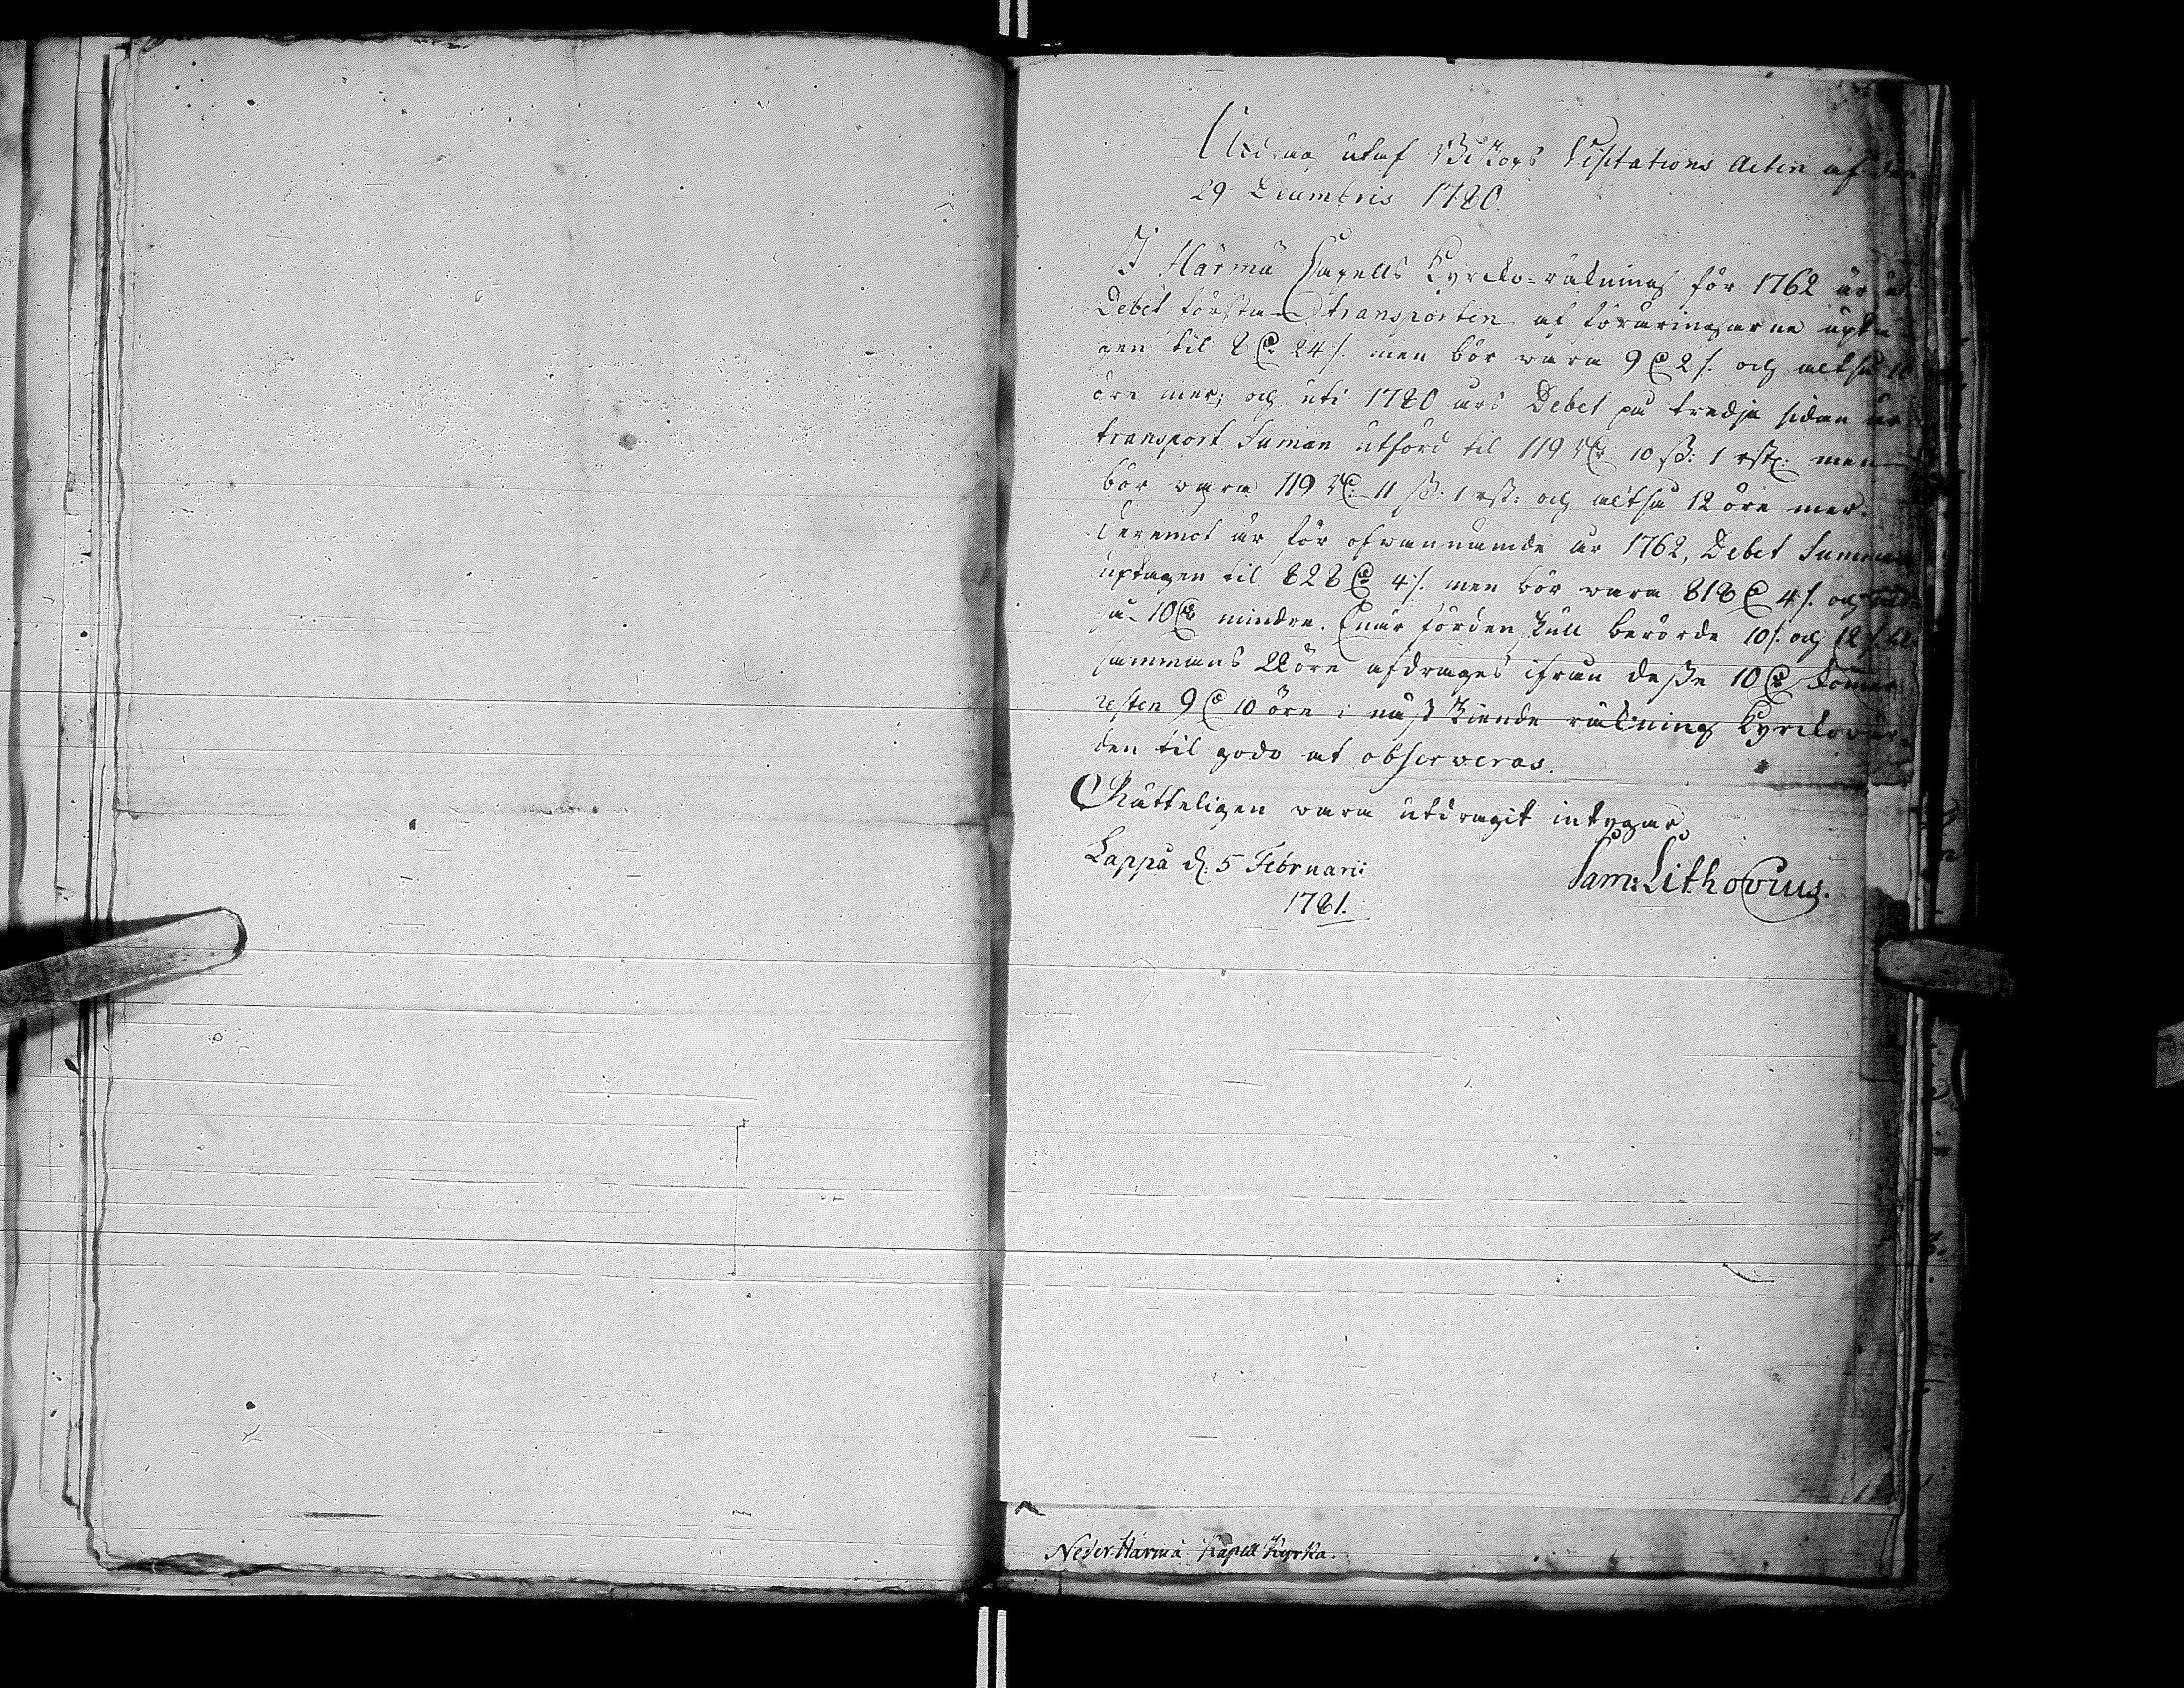 Utdrag utaf Biskops Visitations Acten af den
29 Decembris 1780.
I Härmä Capells Kyrcko-räkning för 1762 är uti
Debet första transporten af foreringarne upta-
gen til 8 D:r 24 /. men bör wara 9 D:r 2 /. och altså 10
öre mer; och uti 1780 års Debet på tredje sidan är
transport Summan utförd til 119 RD:r 10 ß: 1 rst: men
bör wara 119 RD:r 11 ß: 1 rst: och altså 12 öre mer.
Deremot är för ofwannämde år 1762, Debet Summan
uptagen til 828 D:r 4 /. men bör wara 818 D:r 4 /. och alt-
så 10 D:r mindre. Enär fördenskull berörde 10 /. och 12 /. til
sammans 22 öre afdrages ifrån deße 10 D:r kommer
resten 9 D:r 10 öre i näst räkning Kyrckowär-
den til godo at observeras.
Rätteligen wara utdragit intygar
Lappå d: 5 Februarii
1781.
Sam: Lithovius.
Neder Härmä Kapell Kyrka.